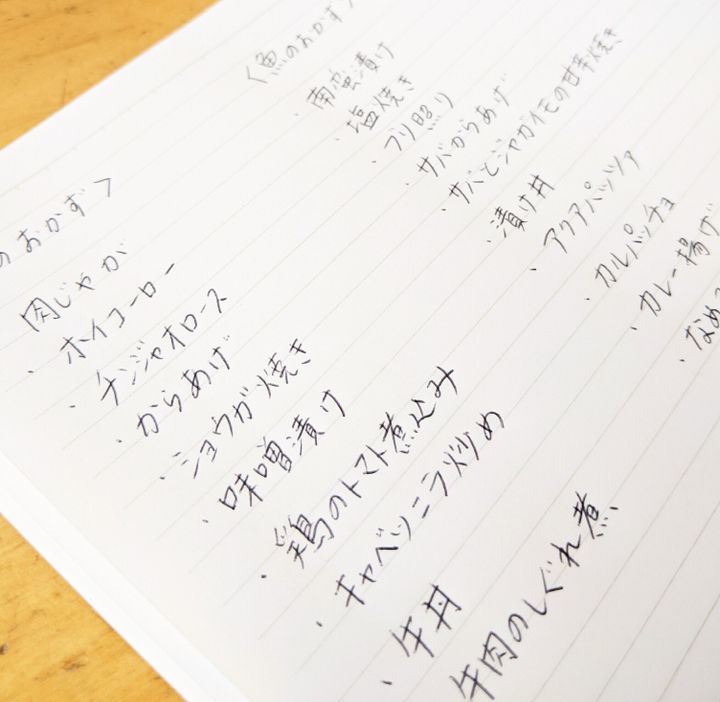 のおかず>
肉じゃが
・ホイコーロー
・チンジャオロース
・からあげ
・ショウガ焼き
・味噌漬け
・鶏のトマト煮込み
・キャベツニラ炒め
・牛丼
牛肉のしぐれ煮
<魚のおかず>
・南蛮漬け
・塩焼き
・ブリ照り
・サバからあげ
・サバとジャガイモの甘辛焼き
・漬け丼
・アクアパッツァ
・カルパッチョ
・カレー揚げ
・なめ